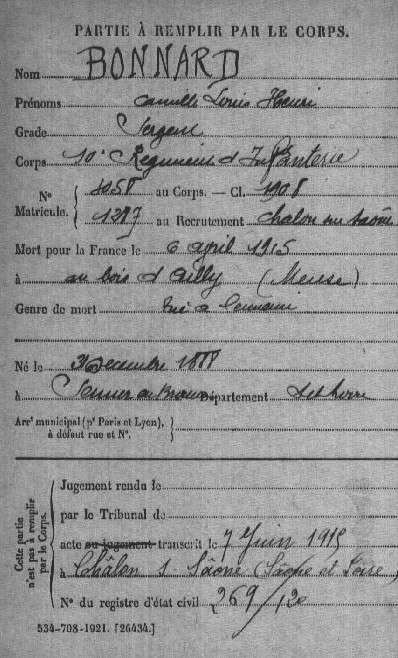 PARTIE À REMPLIR PAR LE CORPS.
Nom BONNARD
Prénoms Camille Louis Henri
Grade Sergent
Corps 10e Régiment d'Infanterie
N° Matricule. { 4058 au Corps. — Cl. 1908
1287 au Recrutement Chalon sur Saône
Mort pour la France le 6 avril 1915
à au bois d'Ailly (Meuse)
Genre de mort Tué à l'ennemi
Né le 3 Décembre 1888
à Département
Arrt municipal (pr Paris et Lyon), à défaut rue et N°. }
Cette partie n'est pas à remplir par le Corps.
Jugement rendu le
par le Tribunal de
acte ou jugement transcrit le 7 Juin 1915
à Châlon s. Saône (Saône et Loire)
N° du registre d'état civil 269/120
534-708-1921. [26434.]